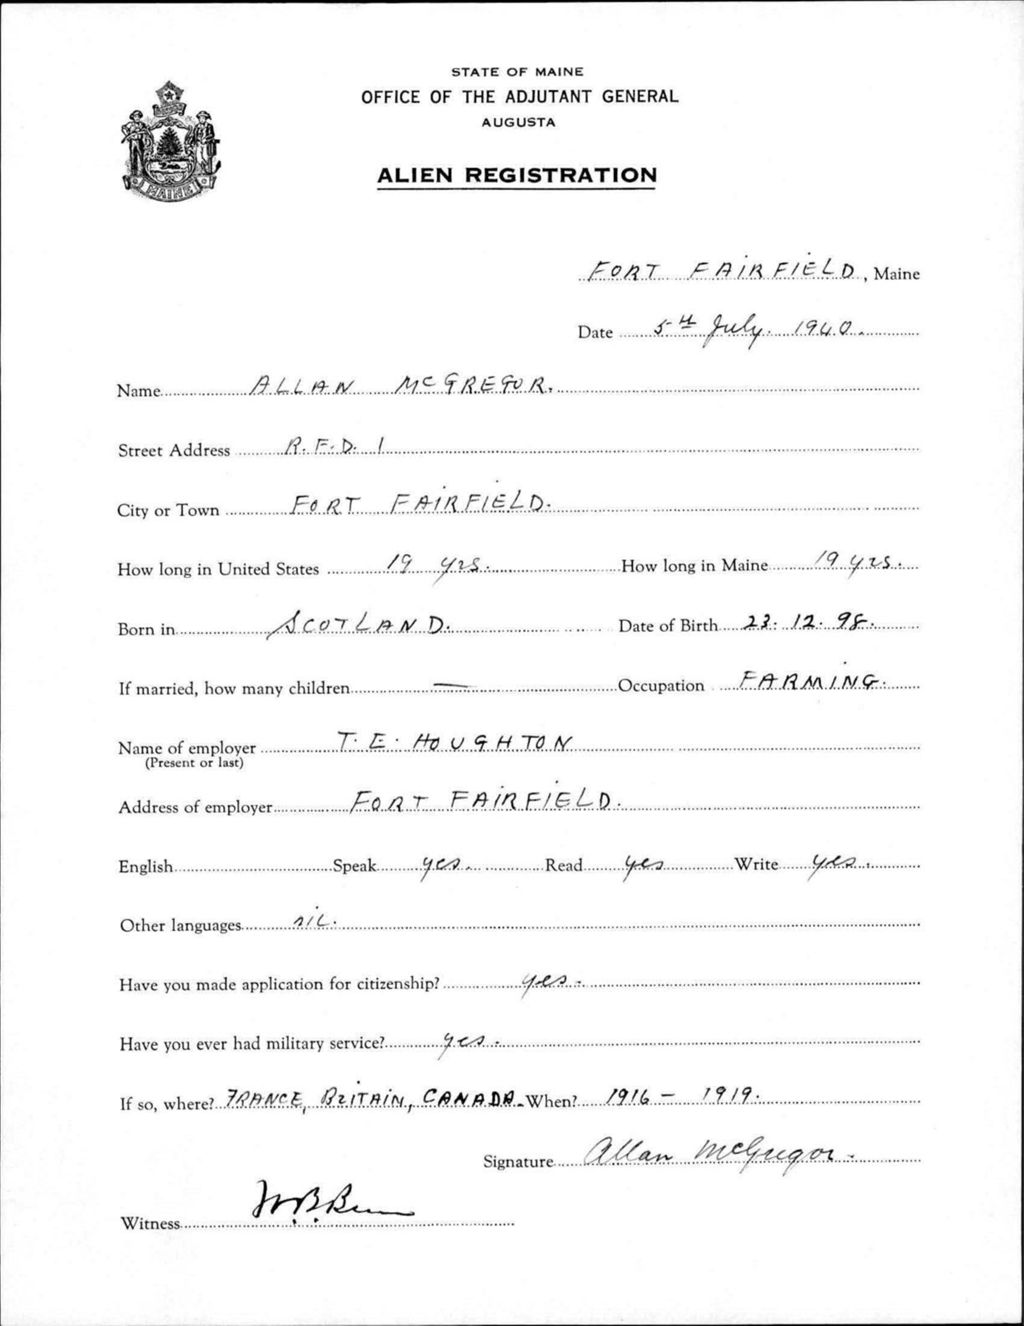 STATE OF MAINE
OFFICE OF THE ADJUTANT GENERAL
AUGUSTA
ALIEN REGISTRATION
MAINE
FORT FAIRFIELD, Maine
Date 5th July. 1940.
Name ALLAN McGREGOR.
Street Address R.F.D. 1
City or Town FORT FAIRFIELD.
How long in United States 19 yrs. How long in Maine 19 yrs.
Born in SCOTLAND. Date of Birth 23. 12. 98.
If married, how many children — Occupation FARMING.
Name of employer T. E. HOUGHTON
(Present or last)
Address of employer FORT FAIRFIELD.
English Speak yes. Read yes Write yes.
Other languages nil.
Have you made application for citizenship? yes.
Have you ever had military service? yes.
If so, where? FRANCE, BRITAIN, CANADA. When? 1916 – 1919.
Signature Allan McGregor.
Witness